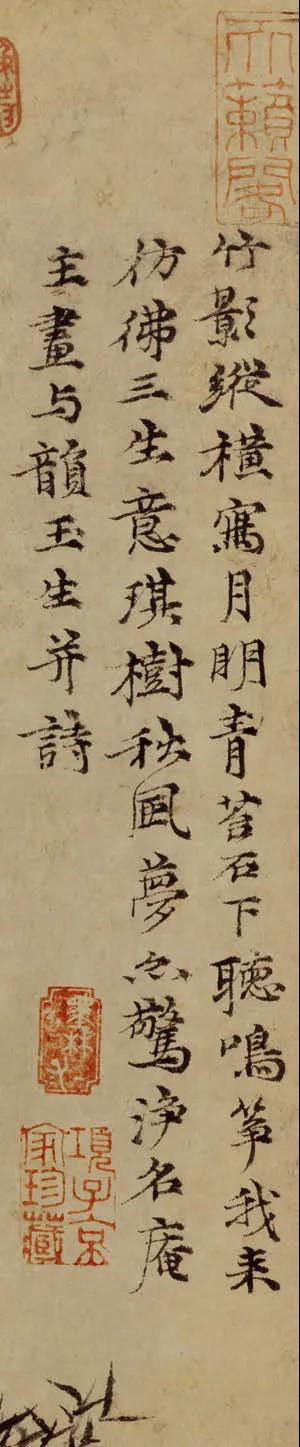 天籟閣
竹影縱橫寫月明青苔石下聽鳴箏我来
仿佛三生意琪樹秋風夢亦驚浄名庵
主畫与韻玉生并詩
項子京
家珍藏